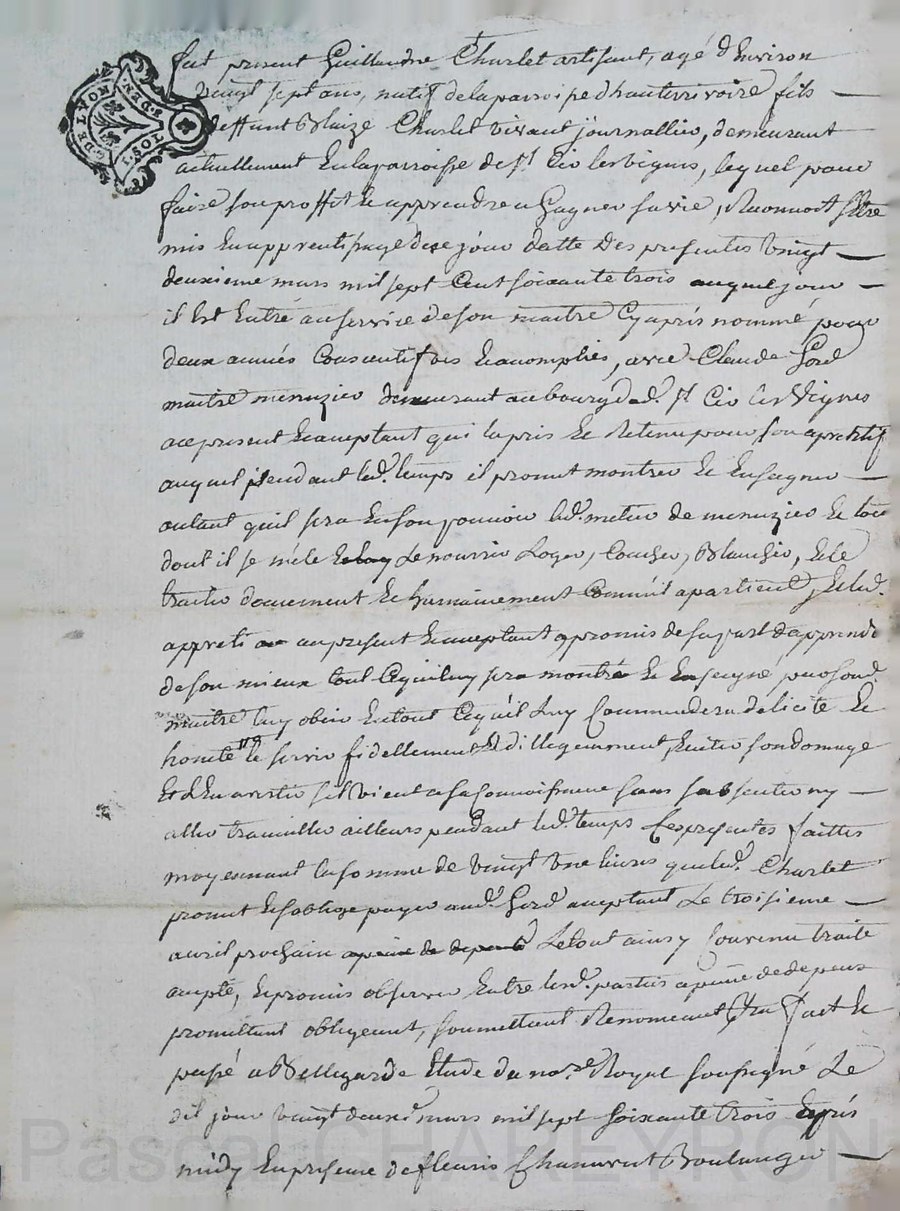 GDE LYON
fut present Guillaume Charlet artisant, agé d'Environ
vingt sept ans, natif de la parroipe d'hauterrivoire fils
deffunt Blaize Charlet vivant journallier, demeurant
actuellement En la parroisse de St Cir les vignes, lequel pour
faire son proffit Et apprendre a Gagner sa vie, Reconnoit s'Etre
mis En apprentissage de ce jour datte Des presentes vingt
deuxieme mars mil sept Cent soixante trois auquel jour
il Est Entré au service de son maitre Cy après nommé, pour
deux années Consecutives Et accomplies, avec Claude
maitre menuzier demeurant au bourg dud. St Cir les Vignes
ace present Et acceptant qui la pris Et Retenu pour son aprentif
auquel pendant led. temps il promet montrer Et Enseigner
autant quil sera En son pouvoir led. metier de menuzier Et tout
dont il se mêle Le nourrir Loger, Coucher, Blanchir, Et le
traiter doucement Et humainement Comme il apartient, Et led.
apprenti au present Et acceptant a promis de sa part d'apprendre
de son mieux tout Ce qui luy sera montré Et Enseigné par sond.
maitre luy obeir En tout Ce qu'il Luy Commandera de licite Et
honnete le servir fidellement Et dilligemment, Eviter son domage
Et L'En avertir s'il vient a sa Connoissance sans s'absenter ny
aller travailler ailleurs pendant led. temps Ces presentes faittes
moyennant la somme de vingt Une livres que led. Charlet
promet Et s'oblige payer aud. acceptant Le troisieme
avril prochain a peine de depens Le tout ainsy Convenu traité
accepté, Et promis observer Entre lesd. parties a peine de depens
promettant obligeant, soumettant Renonceant fait Et
passé a Bellegarde Etude du nore. Royal soussigné Le
dit jour vingt deuxe. mars mil sept soixante trois après
midy En presence de fleuris Chanavat Boulanger
Pascal CHAREYRON